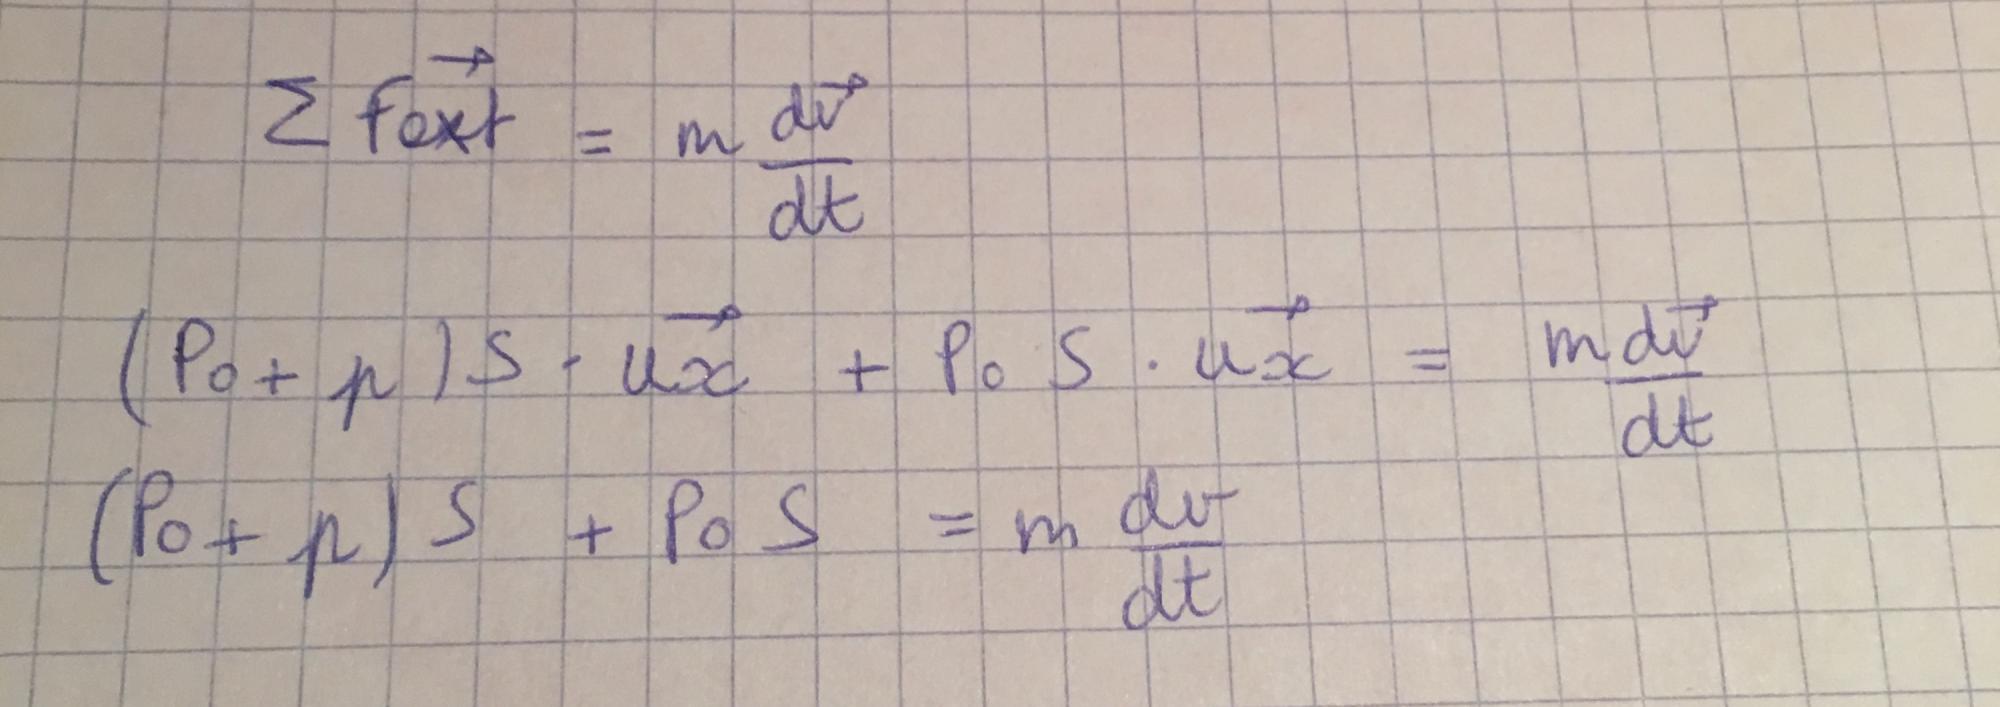 Σ Fext→ = m dv→/dt
(P0 + p) S · ux→ + P0 S · ux→ = m dv→/dt
(P0 + p) S + P0 S = m dv/dt